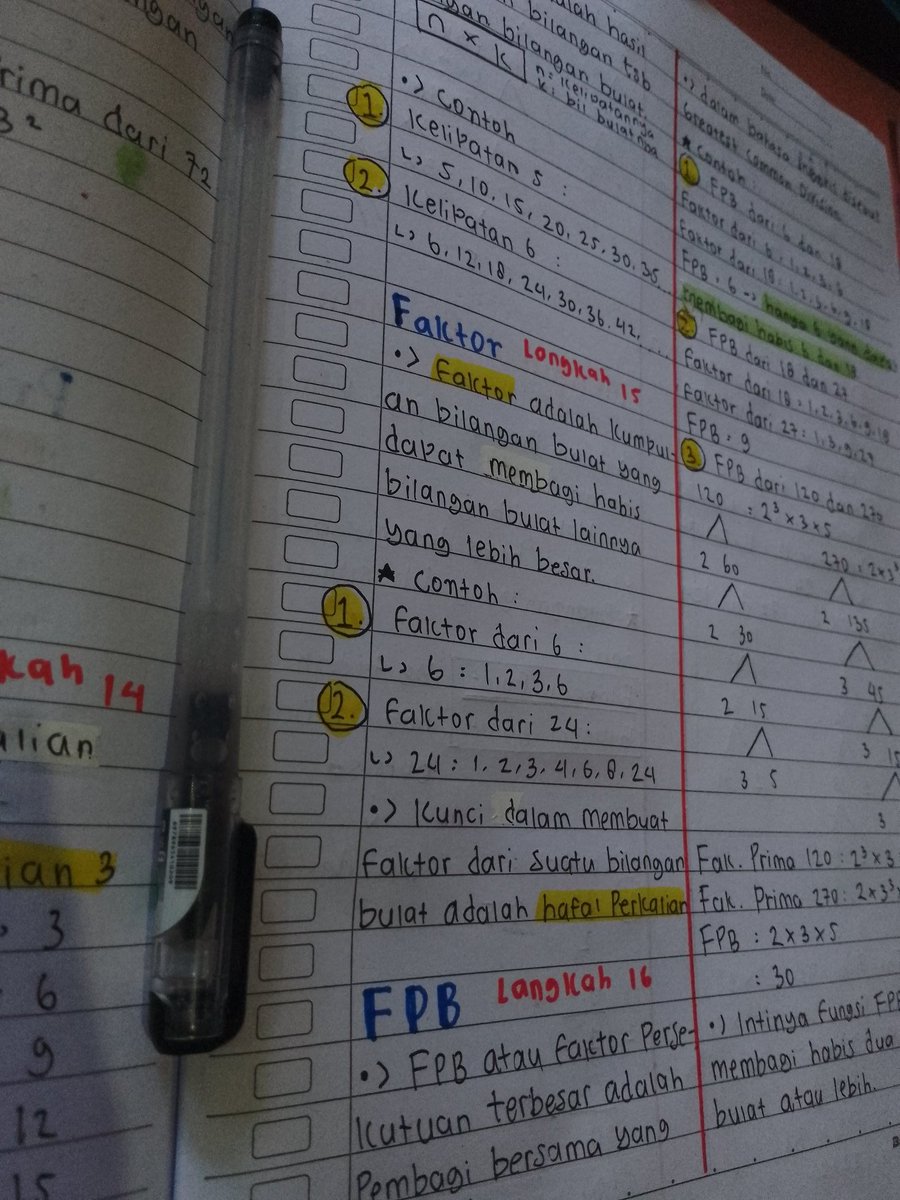 rima dari 72
3²
kah 14
alian
ian 3
3
6
9
12
15
alah hasil
bilangan tsb
gan bilangan bulat.
n × k
n: kelipatannya
k: bil bulatnya
•> Contoh
1 Kelipatan 5 :
↳ 5, 10, 15, 20, 25, 30, 35,
2. Kelipatan 6 :
↳ 6, 12, 18, 24, 30, 36, 42, ...
Faktor Langkah 15
•> Faktor adalah kumpul-
an bilangan bulat yang
dapat membagi habis
bilangan bulat lainnya
yang lebih besar.
★ Contoh :
1. Faktor dari 6 :
↳ 6 : 1, 2, 3, 6
2. Faktor dari 24 :
↳ 24 : 1, 2, 3, 4, 6, 8, 24
•> Kunci dalam membuat
faktor dari suatu bilangan
bulat adalah hafal Perkalian
FPB Langkah 16
•> FPB atau Faktor Perse-
kutuan terbesar adalah
Pembagi bersama yang
•> dalam bahasa inggris disebut
Greatest Common Division
★ Contoh :
1 FPB dari 6 dan 18
Faktor dari 6 : 1, 2, 3, 6
Faktor dari 18 : 1, 2, 3, 6, 9, 18
FPB : 6 → hanya 6 yang dapat
membagi habis 6 dan 18
2 FPB dari 18 dan 27
Faktor dari 18 : 1, 2, 3, 6, 9, 18
Faktor dari 27 : 1, 3, 9, 27
FPB : 9
3 FPB dari 120 dan 270
120 : 2³ × 3 × 5
270 : 2 × 3³
2 60
2 135
2 30
3 45
2 15
3 15
3 5
3
Fak. Prima 120 : 2³ × 3
Fak. Prima 270 : 2 × 3³
FPB : 2 × 3 × 5
: 30
•> Intinya fungsi FPB
membagi habis dua
bulat atau lebih.